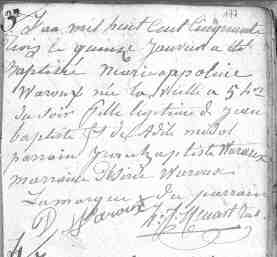 177
3
L'an mil huit cent cinquante
trois le quinze Janvier a été
baptisée Marie appoline
Waroux née la veille à 5 hres
du soir fille légitime de jean
baptiste et de Adil
parrain jean baptiste Waroux
marraine désiré Waroux
la marque du parrain
Waroux
4